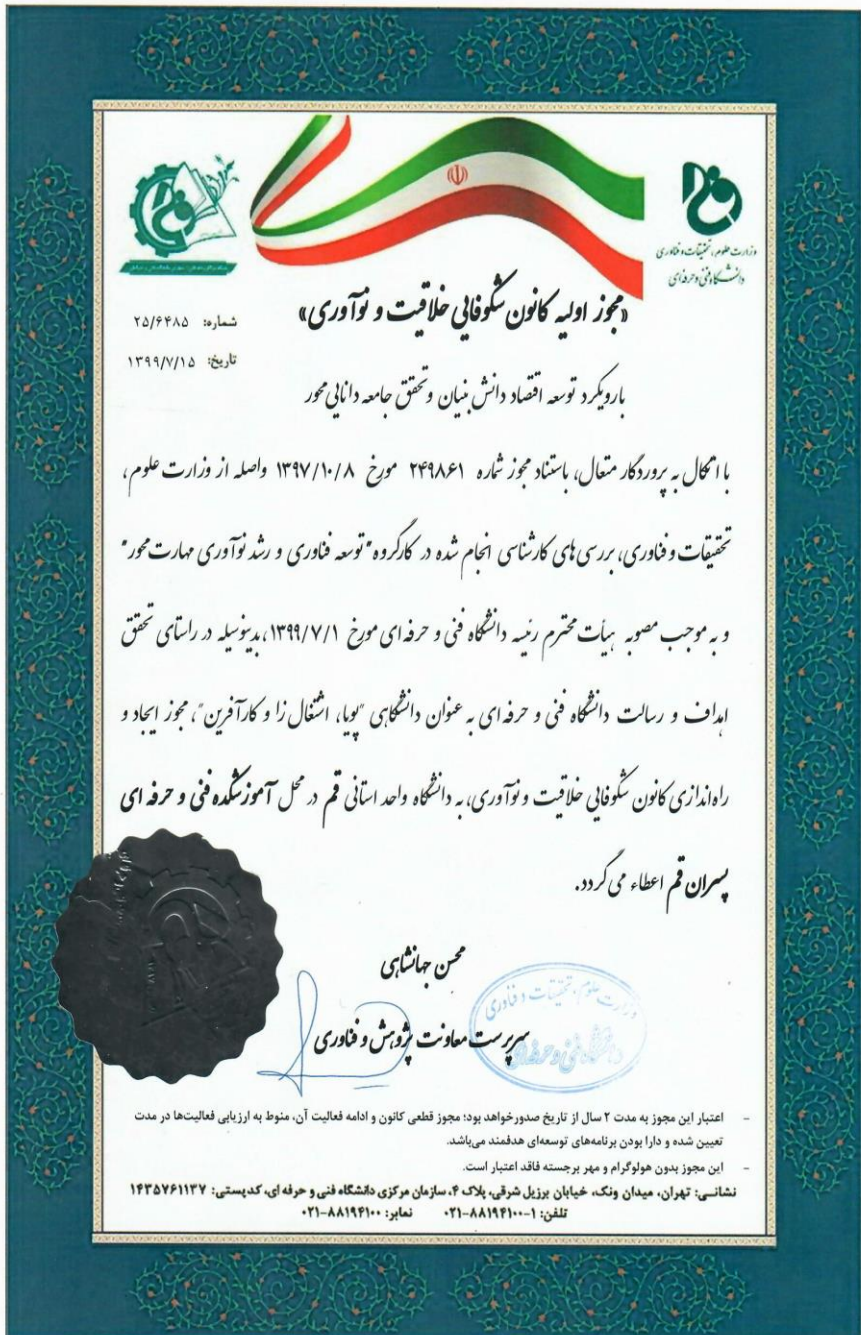 وزارت علوم، تحقیقات و فناوری
دانشگاه فنی و حرفه‌ای
«مجوز اولیه کانون شکوفایی خلاقیت و نوآوری»
شماره: ۲۵/۶۴۸۵
تاریخ: ۱۳۹۹/۷/۱۵
با رویکرد توسعه اقتصاد دانش بنیان و تحقق جامعه دانایی محور
با اتکال به پروردگار متعال، باستناد مجوز شماره ۲۴۹۸۶۱ مورخ ۱۳۹۷/۱۰/۸ واصله از وزارت علوم،
تحقیقات و فناوری، بررسی های کارشناسی انجام شده در کارگروه "توسعه فناوری و رشد نوآوری مهارت محور"
و به موجب مصوبه هیأت محترم رئیسه دانشگاه فنی و حرفه ای مورخ ۱۳۹۹/۷/۱، بدینوسیله در راستای تحقق
اهداف و رسالت دانشگاه فنی و حرفه ای به عنوان دانشگاهی "پویا، اشتغال زا و کارآفرین"، مجوز ایجاد و
راه اندازی کانون شکوفایی خلاقیت و نوآوری، به دانشگاه واحد استانی قم در محل آموزشکده فنی و حرفه ای
پسران قم اعطاء می گردد.
محسن جهانشاهی
سرپرست معاونت پژوهش و فناوری
وزارت علوم، تحقیقات و فناوری
دانشگاه فنی و حرفه‌ای
- اعتبار این مجوز به مدت ۲ سال از تاریخ صدور خواهد بود؛ مجوز قطعی کانون و ادامه فعالیت آن، منوط به ارزیابی فعالیت‌ها در مدت
تعیین شده و دارا بودن برنامه‌های توسعه‌ای هدفمند می‌باشد.
- این مجوز بدون هولوگرام و مهر برجسته فاقد اعتبار است.
نشانـی: تهران، میدان ونک، خیابان برزیل شرقی، پلاک ۴، سازمان مرکزی دانشگاه فنی و حرفه ای، کدپستی: ۱۴۳۵۷۶۱۱۳۷
تلفن: ۱-۸۸۱۹۴۱۰۰-۰۲۱ نمابر: ۸۸۱۹۴۱۰۰-۰۲۱